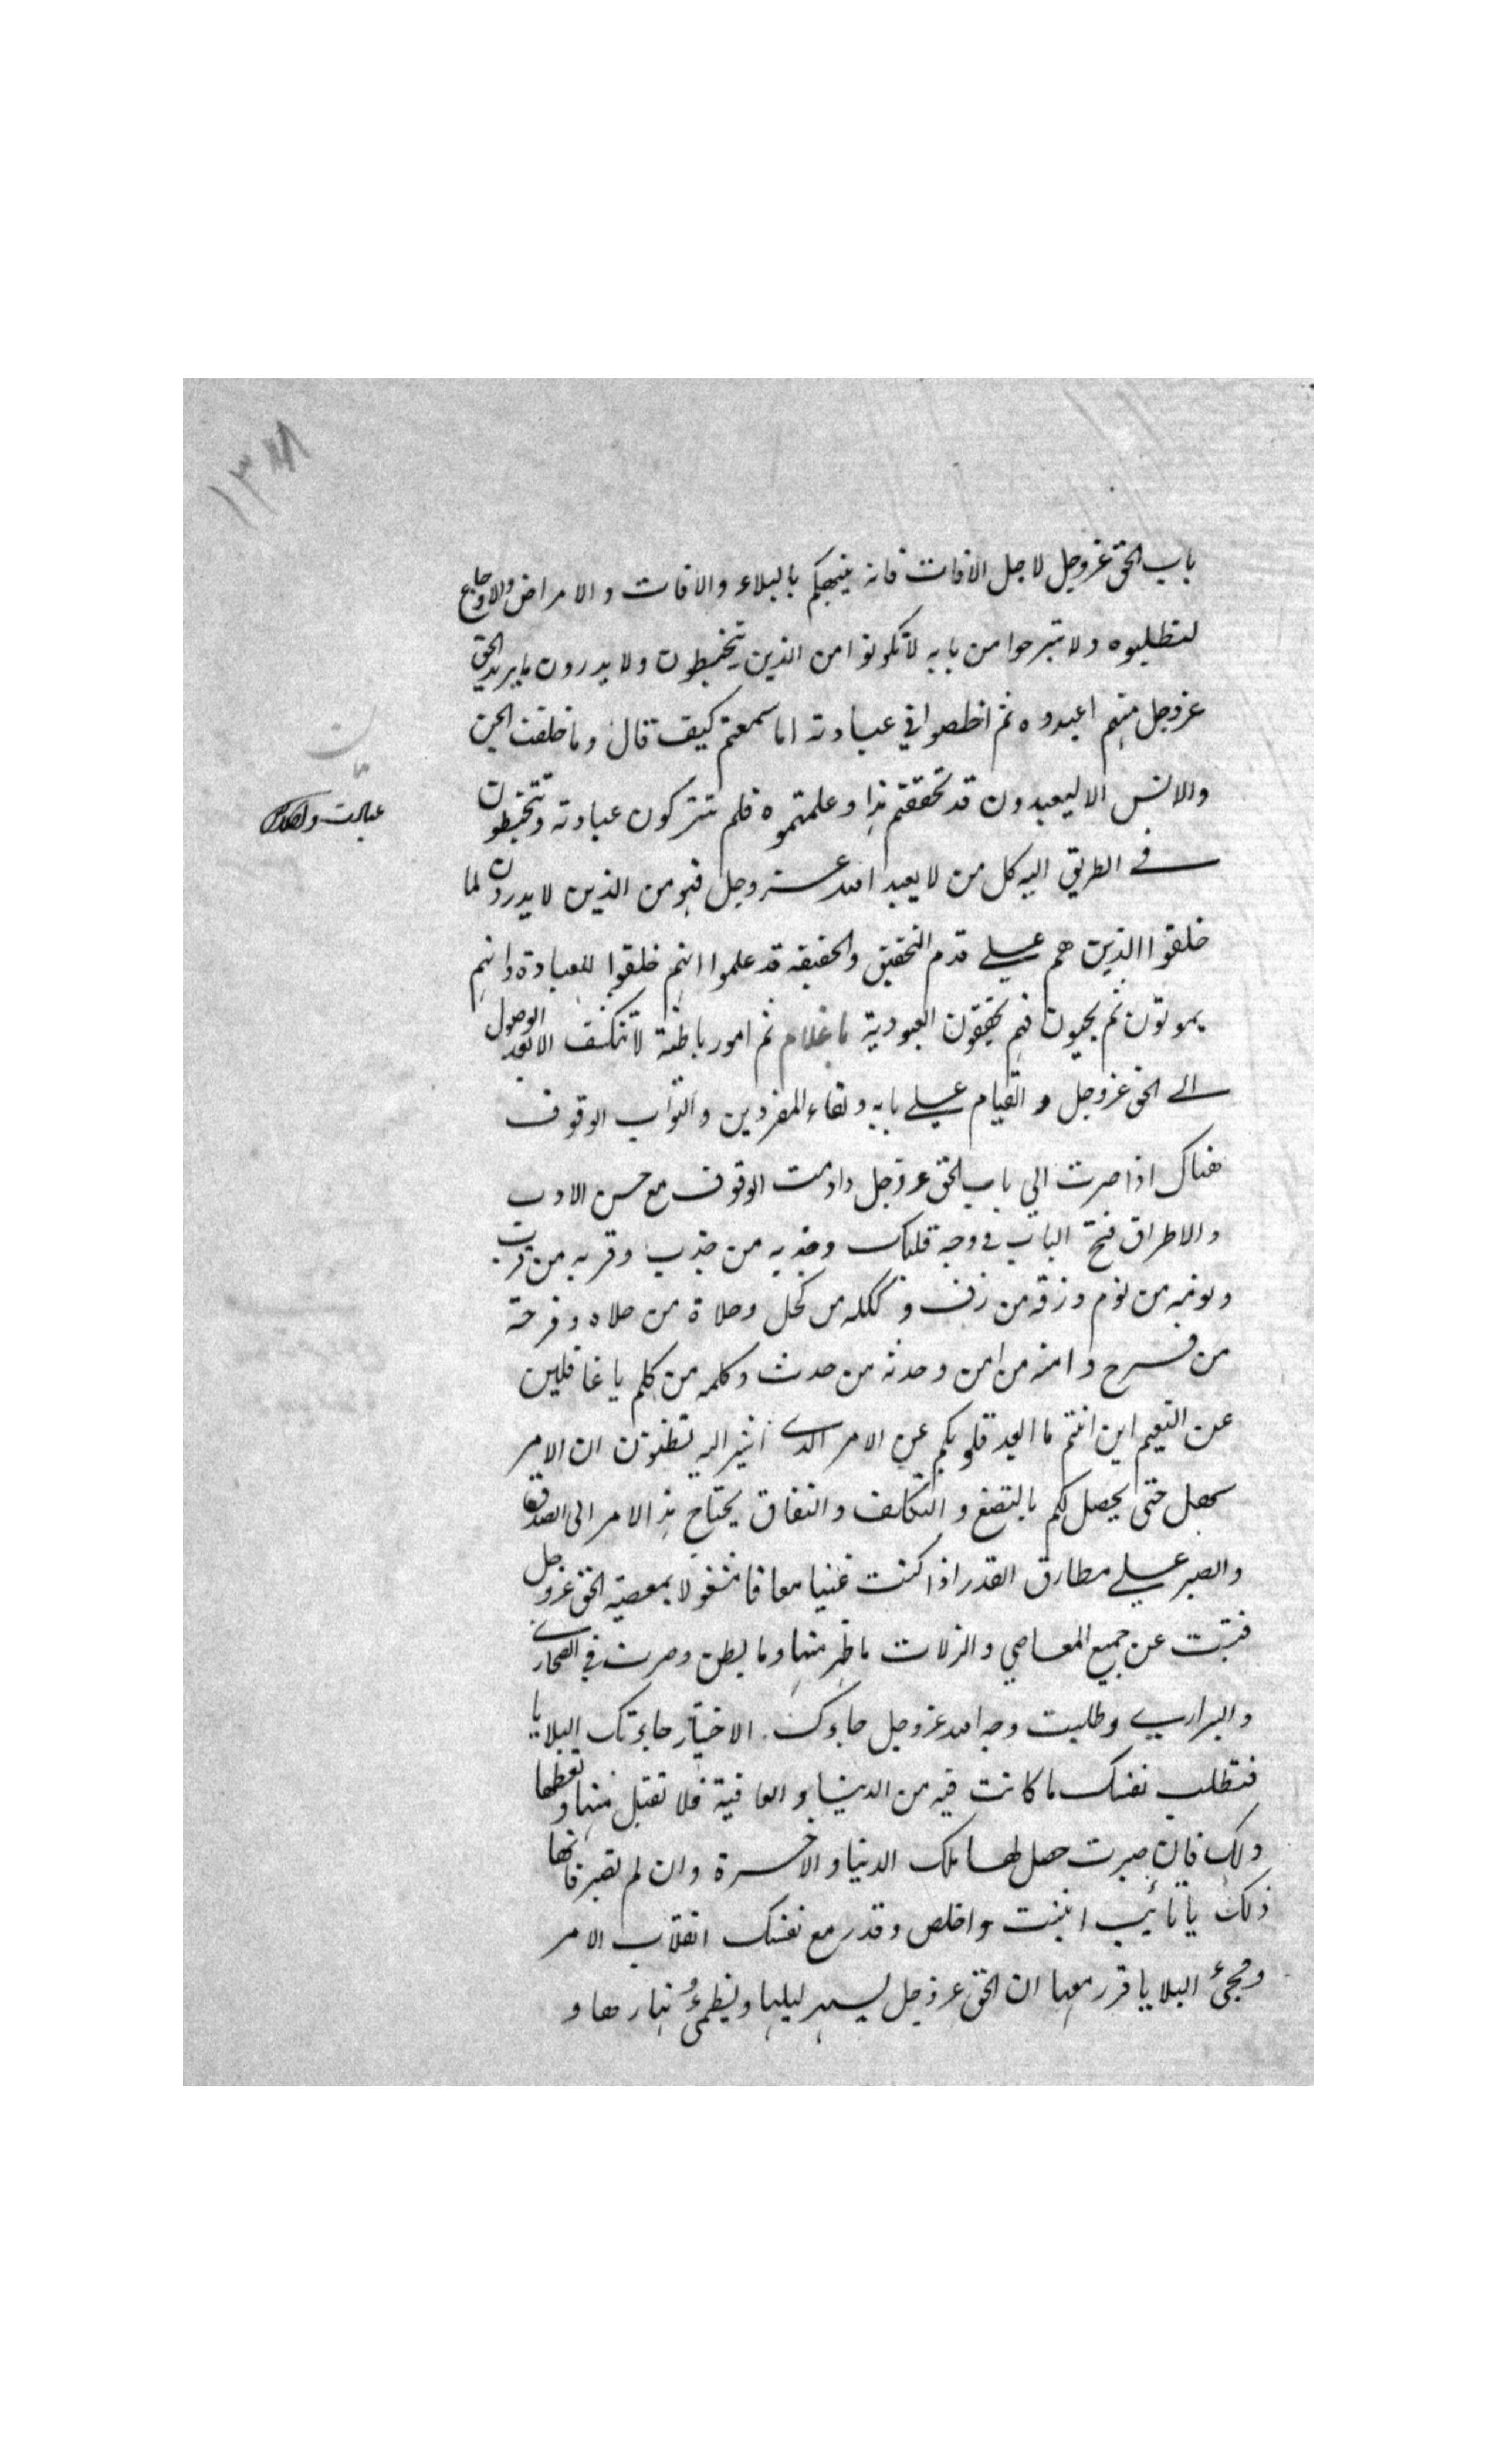 ١٣٨
باب الحق عزوجل لاجل الافات فانه ينبهكم بالبلاء والافات و الامراض والاوجاع
لتطلبوه ولا تبرحوا من بابه لا تكونوا من الذين يتخبطون ولا يدرون ما يريد الحق
عزوجل منهم اعبدوه ثم اخلصوا في عبادته اما سمعتم كيف قال وما خلقت الجن
والانس الا ليعبدون قد تحققتم هذا وعلمتموه فلم تتركون عبادته وتتخبطون
في الطريق اليه كل من لا يعبد الله عزوجل فهو من الذين لا يدرون لما
خلقوا الذين هم علي قدم التحقيق والحقيقه قد علموا انهم خلقوا للعبادة وانهم
يموتون ثم يحيون فهم يحققون العبودية يا غلام ثم امور باطنة لا تنكشف الا بعد الوصول
الي الحق عزوجل و القيام علي بابه ولقاء المفردين والنواب الوقوف
هناك اذا صرت الي باب الحق عزوجل وادمت الوقوف مع حسن الادب
والاطراق فتح الباب في وجه قلبك وجذبه من جذب وقربه من قرب
ونومه من نوم وزفه من زف وكحله من كحل وحلاه من حلاه وفرحه
من فرح وامنه من امن وحدثه من حدث وكلمه من كلم يا غافلين
عن النعيم اين انتم ما ابعد قلوبكم عن الامر الذي اشير اليه تظنون ان الامر
سهل حتى يحصل لكم بالتصنع و التكلف والنفاق يحتاج هذا الامر الى الصدق
والصبر علي مطارق القدر اذا كنت غنيا معافا مشغولا بمعصية الحق عزوجل
فتبت عن جميع المعاصي والزلات ما ظهر منها وما بطن وصرت في الصحاري
والبراري وطلبت وجه الله عزوجل جاءك الاختبار جاءتك البلايا
فتطلب نفسك ما كانت فيه من الدنيا و العافية فلا تقبل منها و تعطها
ذلك فان صبرت حصل لها ملك الدنيا والاخرة وان لم تصبر فاتها
ذلك يا تائب اثبت واخلص وقدر مع نفسك انقلاب الامر
ومجئ البلايا قرر معها ان الحق عزوجل يسهر ليلها ويظمئ نهارها و